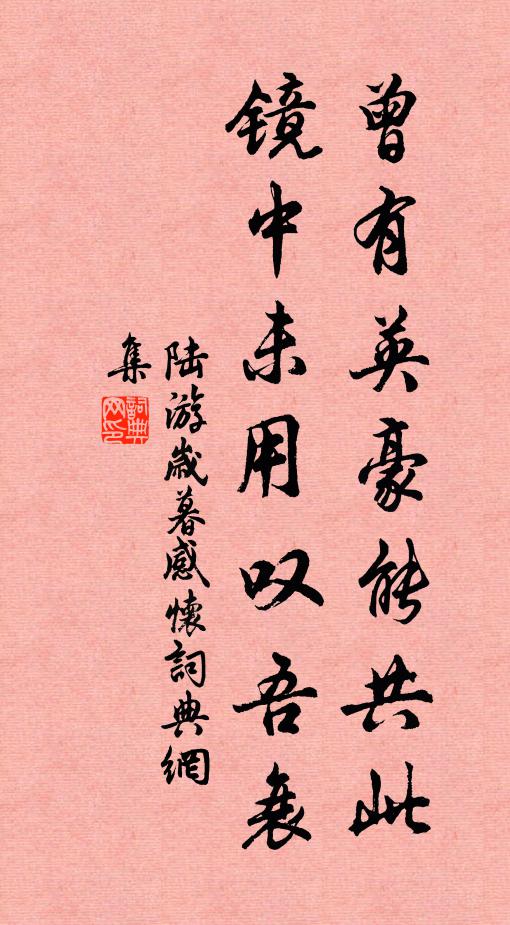 曾有英豪能共此
镜中未用叹吾衰
陆游歳暮感懷詞典網
集
詞典
网印